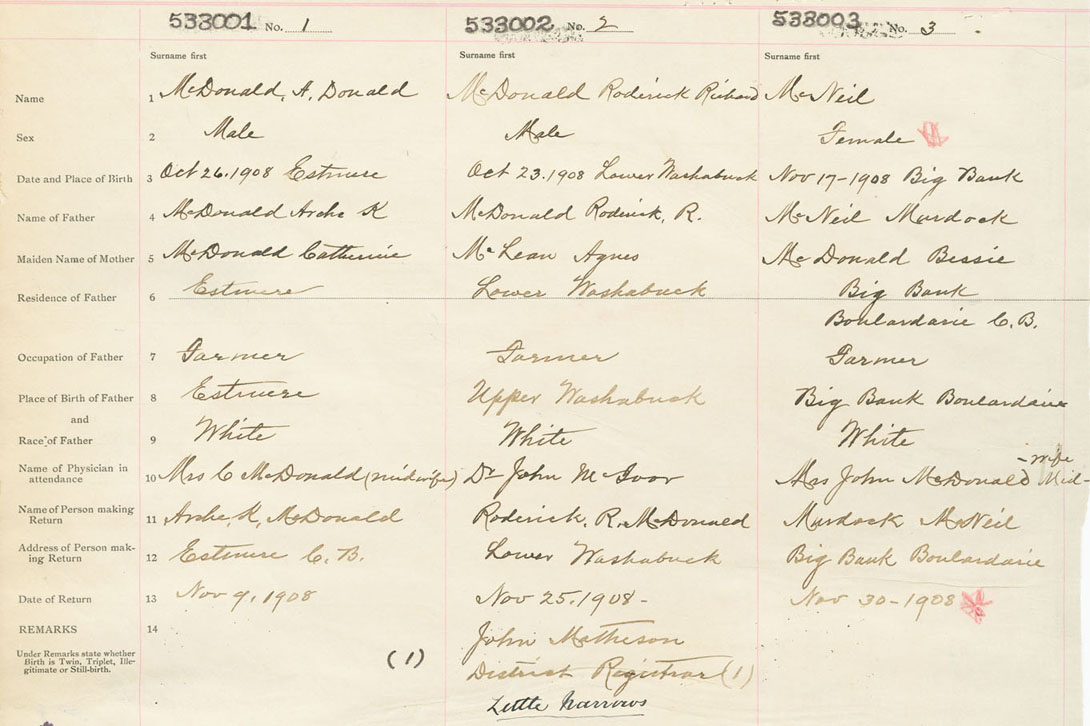 533001 No. 1
533002 No. 2
533003 No. 3
Surname first
Surname first
Surname first
Name 1 McDonald, A, Donald
McDonald Roderick Richard
McNeil
Sex 2 Male
Male
Female
Date and Place of Birth 3 Oct 26. 1908 Estmere
Oct 23. 1908 Lower Washabuck
Nov 17-1908 Big Bank
Name of Father 4 McDonald Archie K
McDonald Roderick, R.
McNeil Murdock
Maiden Name of Mother 5 McDonald Catherine
McLean Agnes
McDonald Bessie
Residence of Father 6 Estmere
Lower Washabuck
Big Bank
Boulardarie C.B.
Occupation of Father 7 Farmer
Farmer
Farmer
Place of Birth of Father 8 Estmere
Upper Washabuck
Big Bank Boulardarie
and
Race of Father 9 White
White
White
Name of Physician in
attendance 10 Mrs C McDonald (midwife)
Dr John McIvor
Mrs John McDonald Mid-
-wife
Name of Person making
Return 11 Archie, K, McDonald
Roderick, R. McDonald
Murdock McNeil
Address of Person mak-
ing Return 12 Estmere C. B.
Lower Washabuck
Big Bank Boulardarie
Date of Return 13 Nov 9, 1908
Nov 25. 1908-
Nov 30-1908
REMARKS 14
Under Remarks state whether
Birth is Twin, Triplet, Ille-
gitimate or Still-birth.
(1)
John Matheson
District Registrar (1)
Little Narrows